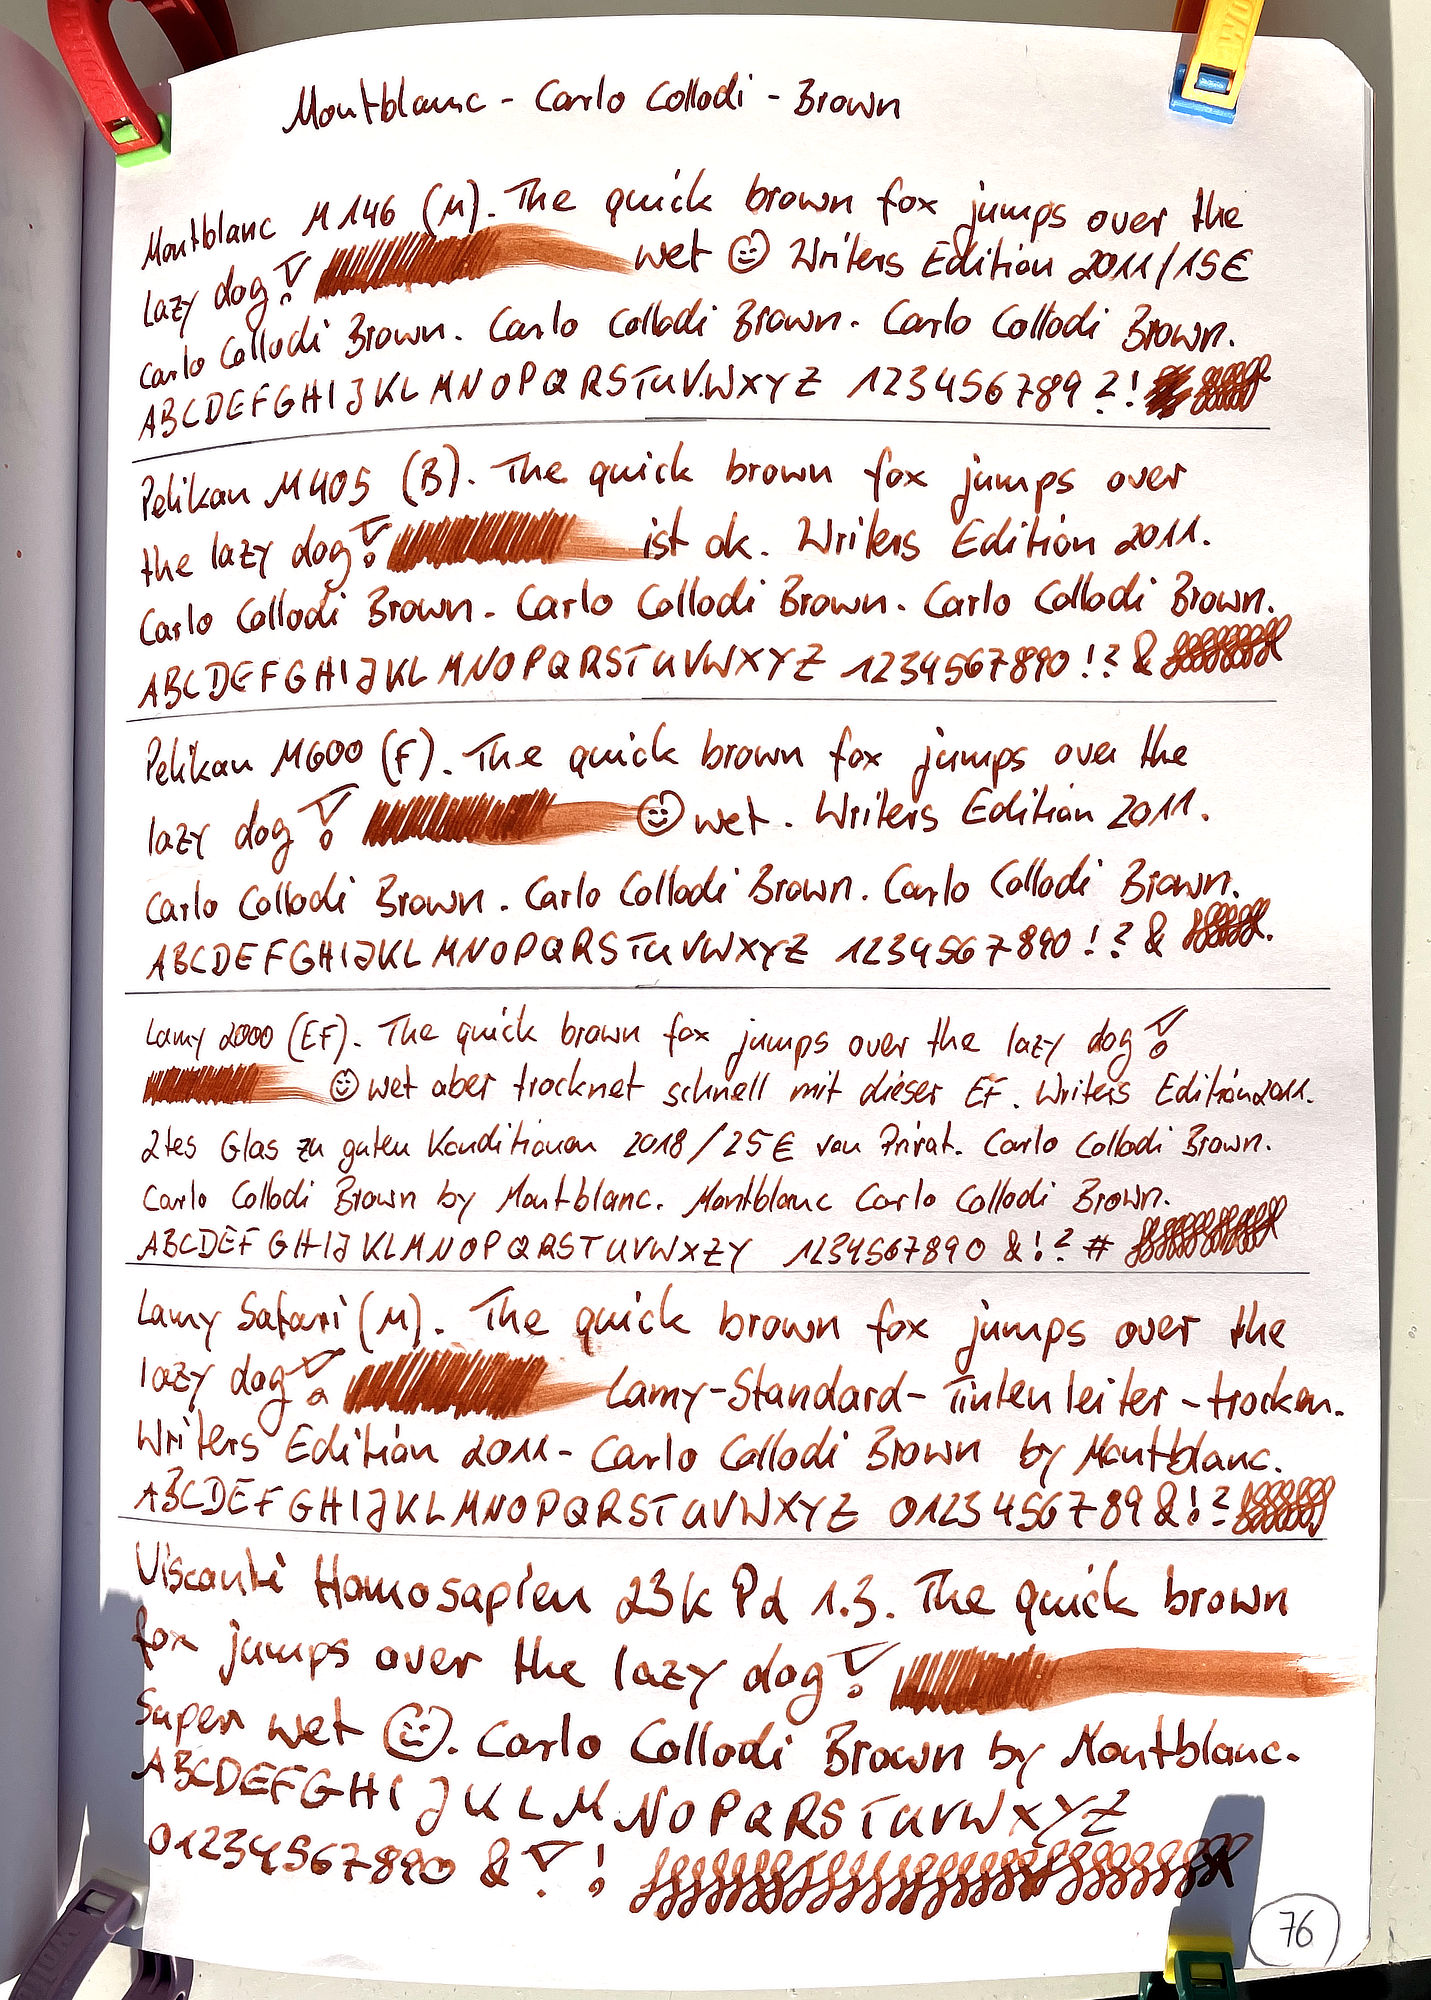 Montblanc - Carlo Collodi - Brown
Montblanc M146 (M). The quick brown fox jumps over the
lazy dog! wet ☺ Writers Edition 2011/15€
Carlo Collodi Brown. Carlo Collodi Brown. Carlo Collodi Brown.
ABCDEFGHIJKLMNOPQRSTUVWXYZ 123456789 ?!
Pelikan M405 (B). The quick brown fox jumps over
the lazy dog! ist ok. Writers Edition 2011.
Carlo Collodi Brown. Carlo Collodi Brown. Carlo Collodi Brown.
ABCDEFGHIJKLMNOPQRSTUVWXYZ 1234567890 !? &
Pelikan M600 (F). The quick brown fox jumps over the
lazy dog! ☺ wet. Writers Edition 2011.
Carlo Collodi Brown. Carlo Collodi Brown. Carlo Collodi Brown.
ABCDEFGHIJKLMNOPQRSTUVWXYZ 1234567890 !? &
Lamy 2000 (EF). The quick brown fox jumps over the lazy dog!
☺ wet aber trocknet schnell mit dieser EF. Writers Edition 2011.
2tes Glas zu guten Konditionen 2018/25€ von Privat. Carlo Collodi Brown.
Carlo Collodi Brown by Montblanc. Montblanc Carlo Collodi Brown.
ABCDEFGHIJKLMNOPQRSTUVWXZY 1234567890 &!? #
Lamy Safari (M). The quick brown fox jumps over the
lazy dog! Lamy-Standard-Tintenleiter - trocken.
Writers Edition 2011 - Carlo Collodi Brown by Montblanc.
ABCDEFGHIJKLMNOPQRSTUVWXYZ 0123456789 &!?
Visconti Homosapien 23k Pd 1.3. The quick brown
fox jumps over the lazy dog!
Super wet ☺. Carlo Collodi Brown by Montblanc.
ABCDEFGHIJKLMNOPQRSTUVWXYZ
01234567890 & ! !
76